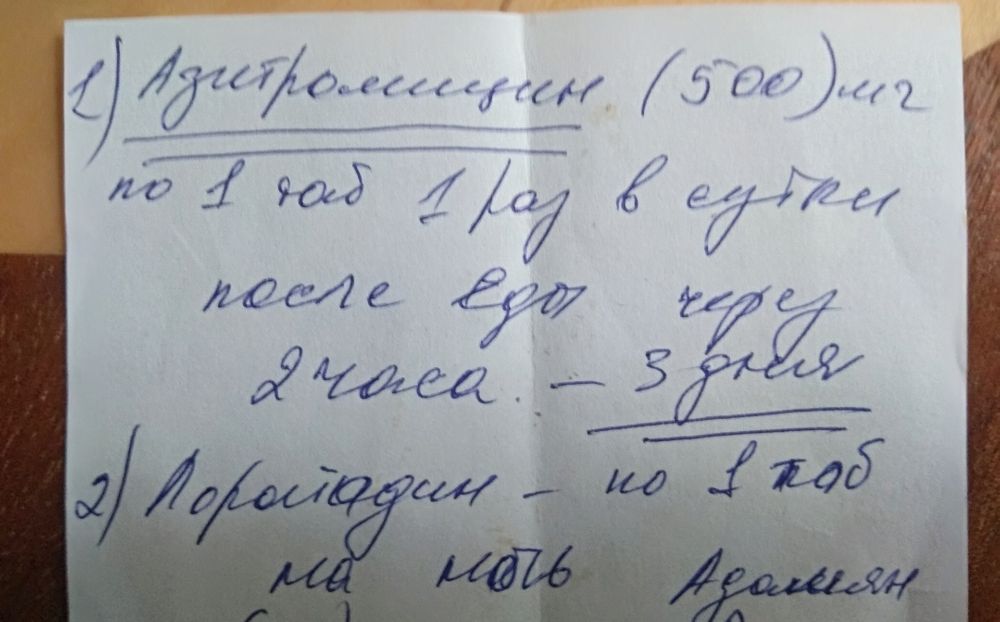 1) Азитромицин (500) мг
по 1 таб 1 раз в сутки
после еды через
2 часа. – 3 дня
2) Лоратадин – по 1 таб
на ночь